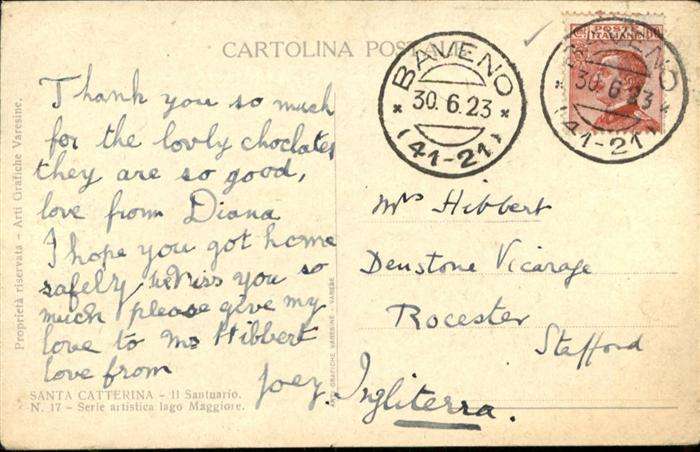 CARTOLINA POSTALE
Thank you so much
for the lovly choclates
they are so good,
love from Diana
I hope you got home
safely, Miss you so
much please give my
love to Mr Hibbert
love from
Joey.
BAVENO
* 30.6.23 *
(41-21)
BAVENO
* 30.6.23 *
(41-21)
POSTE
ITALIANE
Mrs Hibbert
Denstone Vicarage
Rocester
Stafford
Ingliterra.
SANTA CATTERINA - Il Santuario.
N. 17 - Serie artistica lago Maggiore.
Proprietà riservata - Arti Grafiche Varesine.
ARTI GRAFICHE VARESINE - VARESE